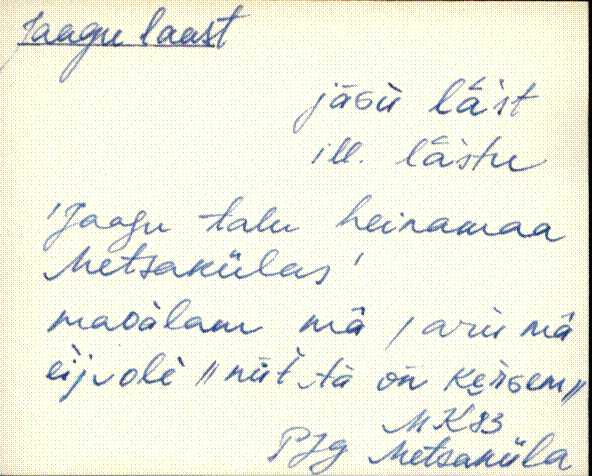 Jaagu laast
jāGù lǟst
ill. lǟstu
'Jaagu talu heinamaa
Metsakülas'
maDàlam mā / arù mā
èi‿olè // nüt tä on kèrGem //
MK83
PJg Metsaküla